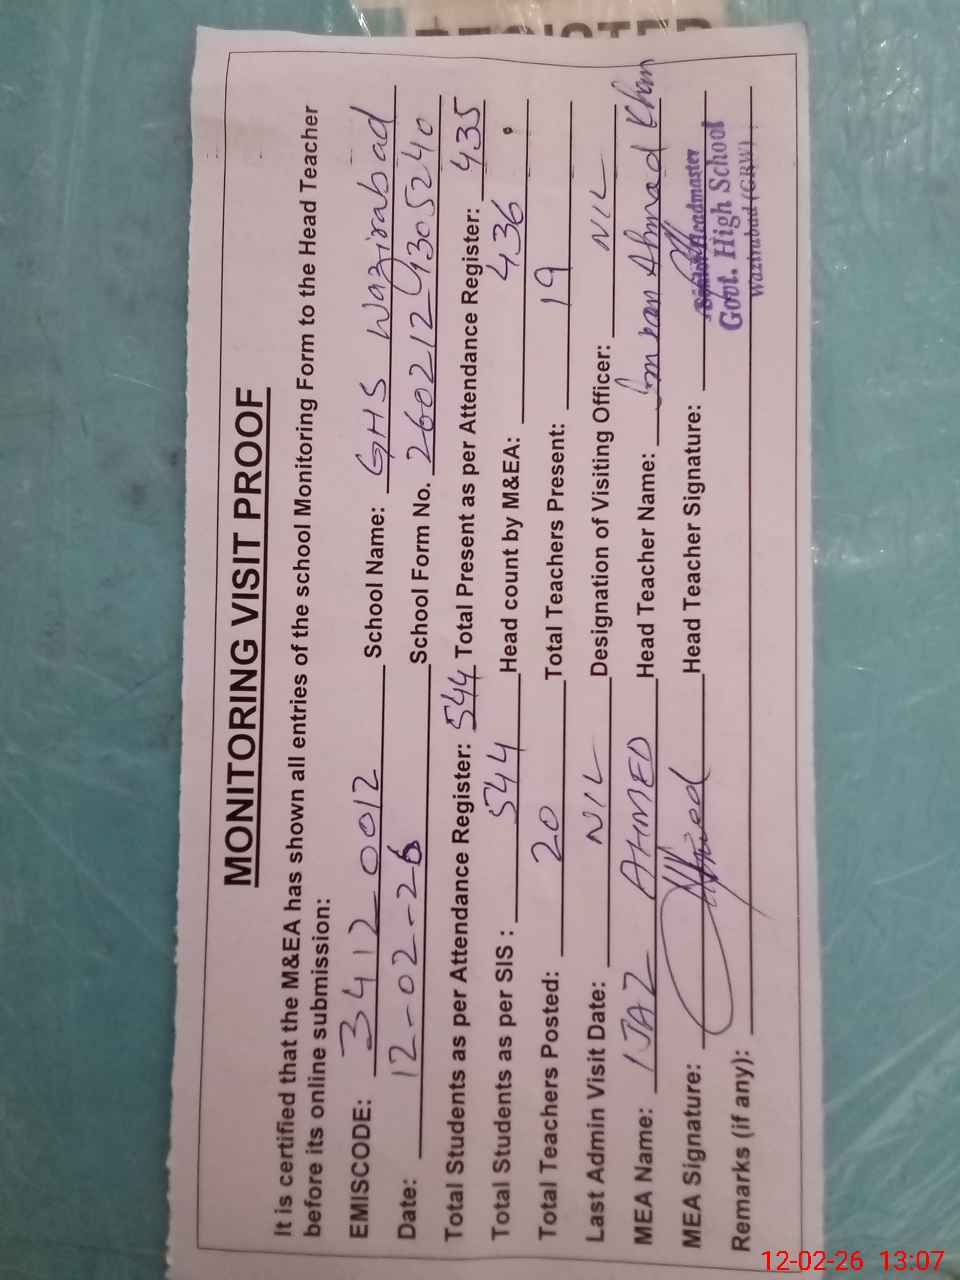 REGISTER
MONITORING VISIT PROOF
It is certified that the M&EA has shown all entries of the school Monitoring Form to the Head Teacher
before its online submission:
EMISCODE: 3412-0012 School Name: GHS Wazirabad
Date: 12-02-26 School Form No. 2602124305240
Total Students as per Attendance Register: 544 Total Present as per Attendance Register: 435
Total Students as per SIS : 544 Head count by M&EA: 436
Total Teachers Posted: 20 Total Teachers Present: 19
Last Admin Visit Date: NIL Designation of Visiting Officer: NIL
MEA Name: IJAZ AHMED Head Teacher Name: Imran Ahmad Khan
MEA Signature: Head Teacher Signature:
Headmaster
Govt. High School
Wazirabad (GRW)
Remarks (if any):
12-02-26 13:07